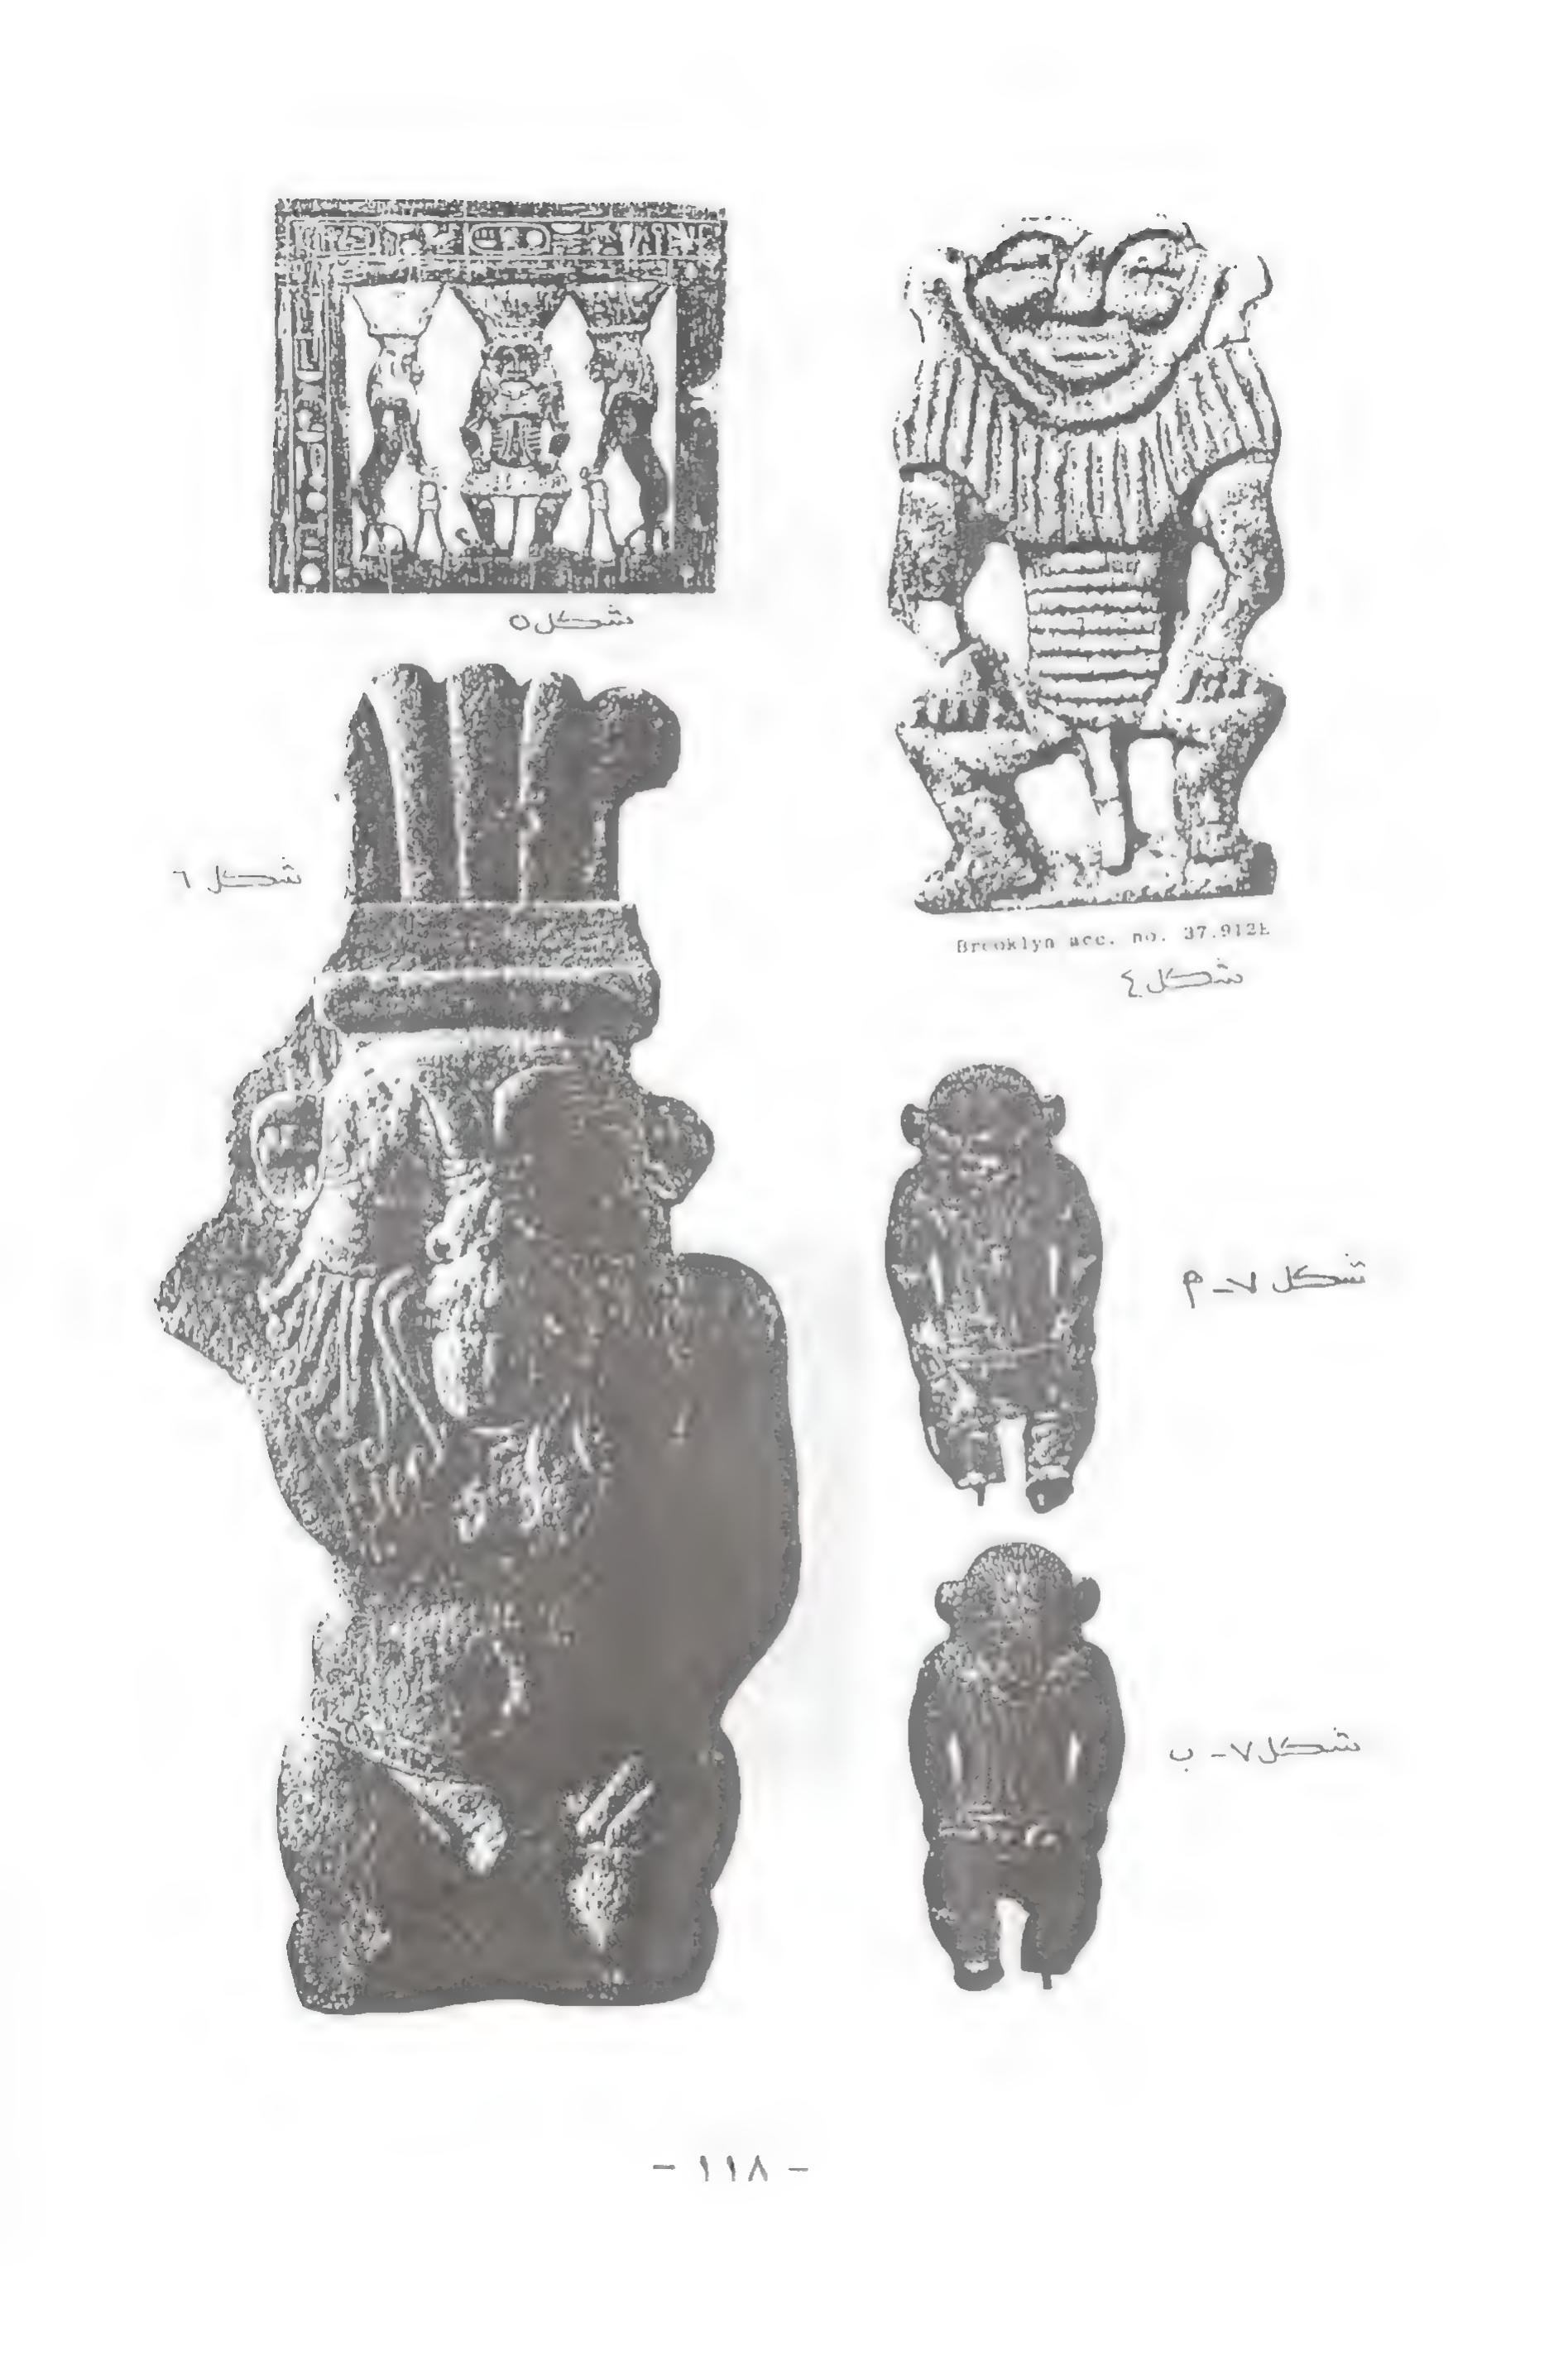 شكل ٥
Brooklyn acc. no. 37.912E
شكل ٤
شكل ٦
شكل ٧ - م
شكل ٧ - ب
- ١١٨ -